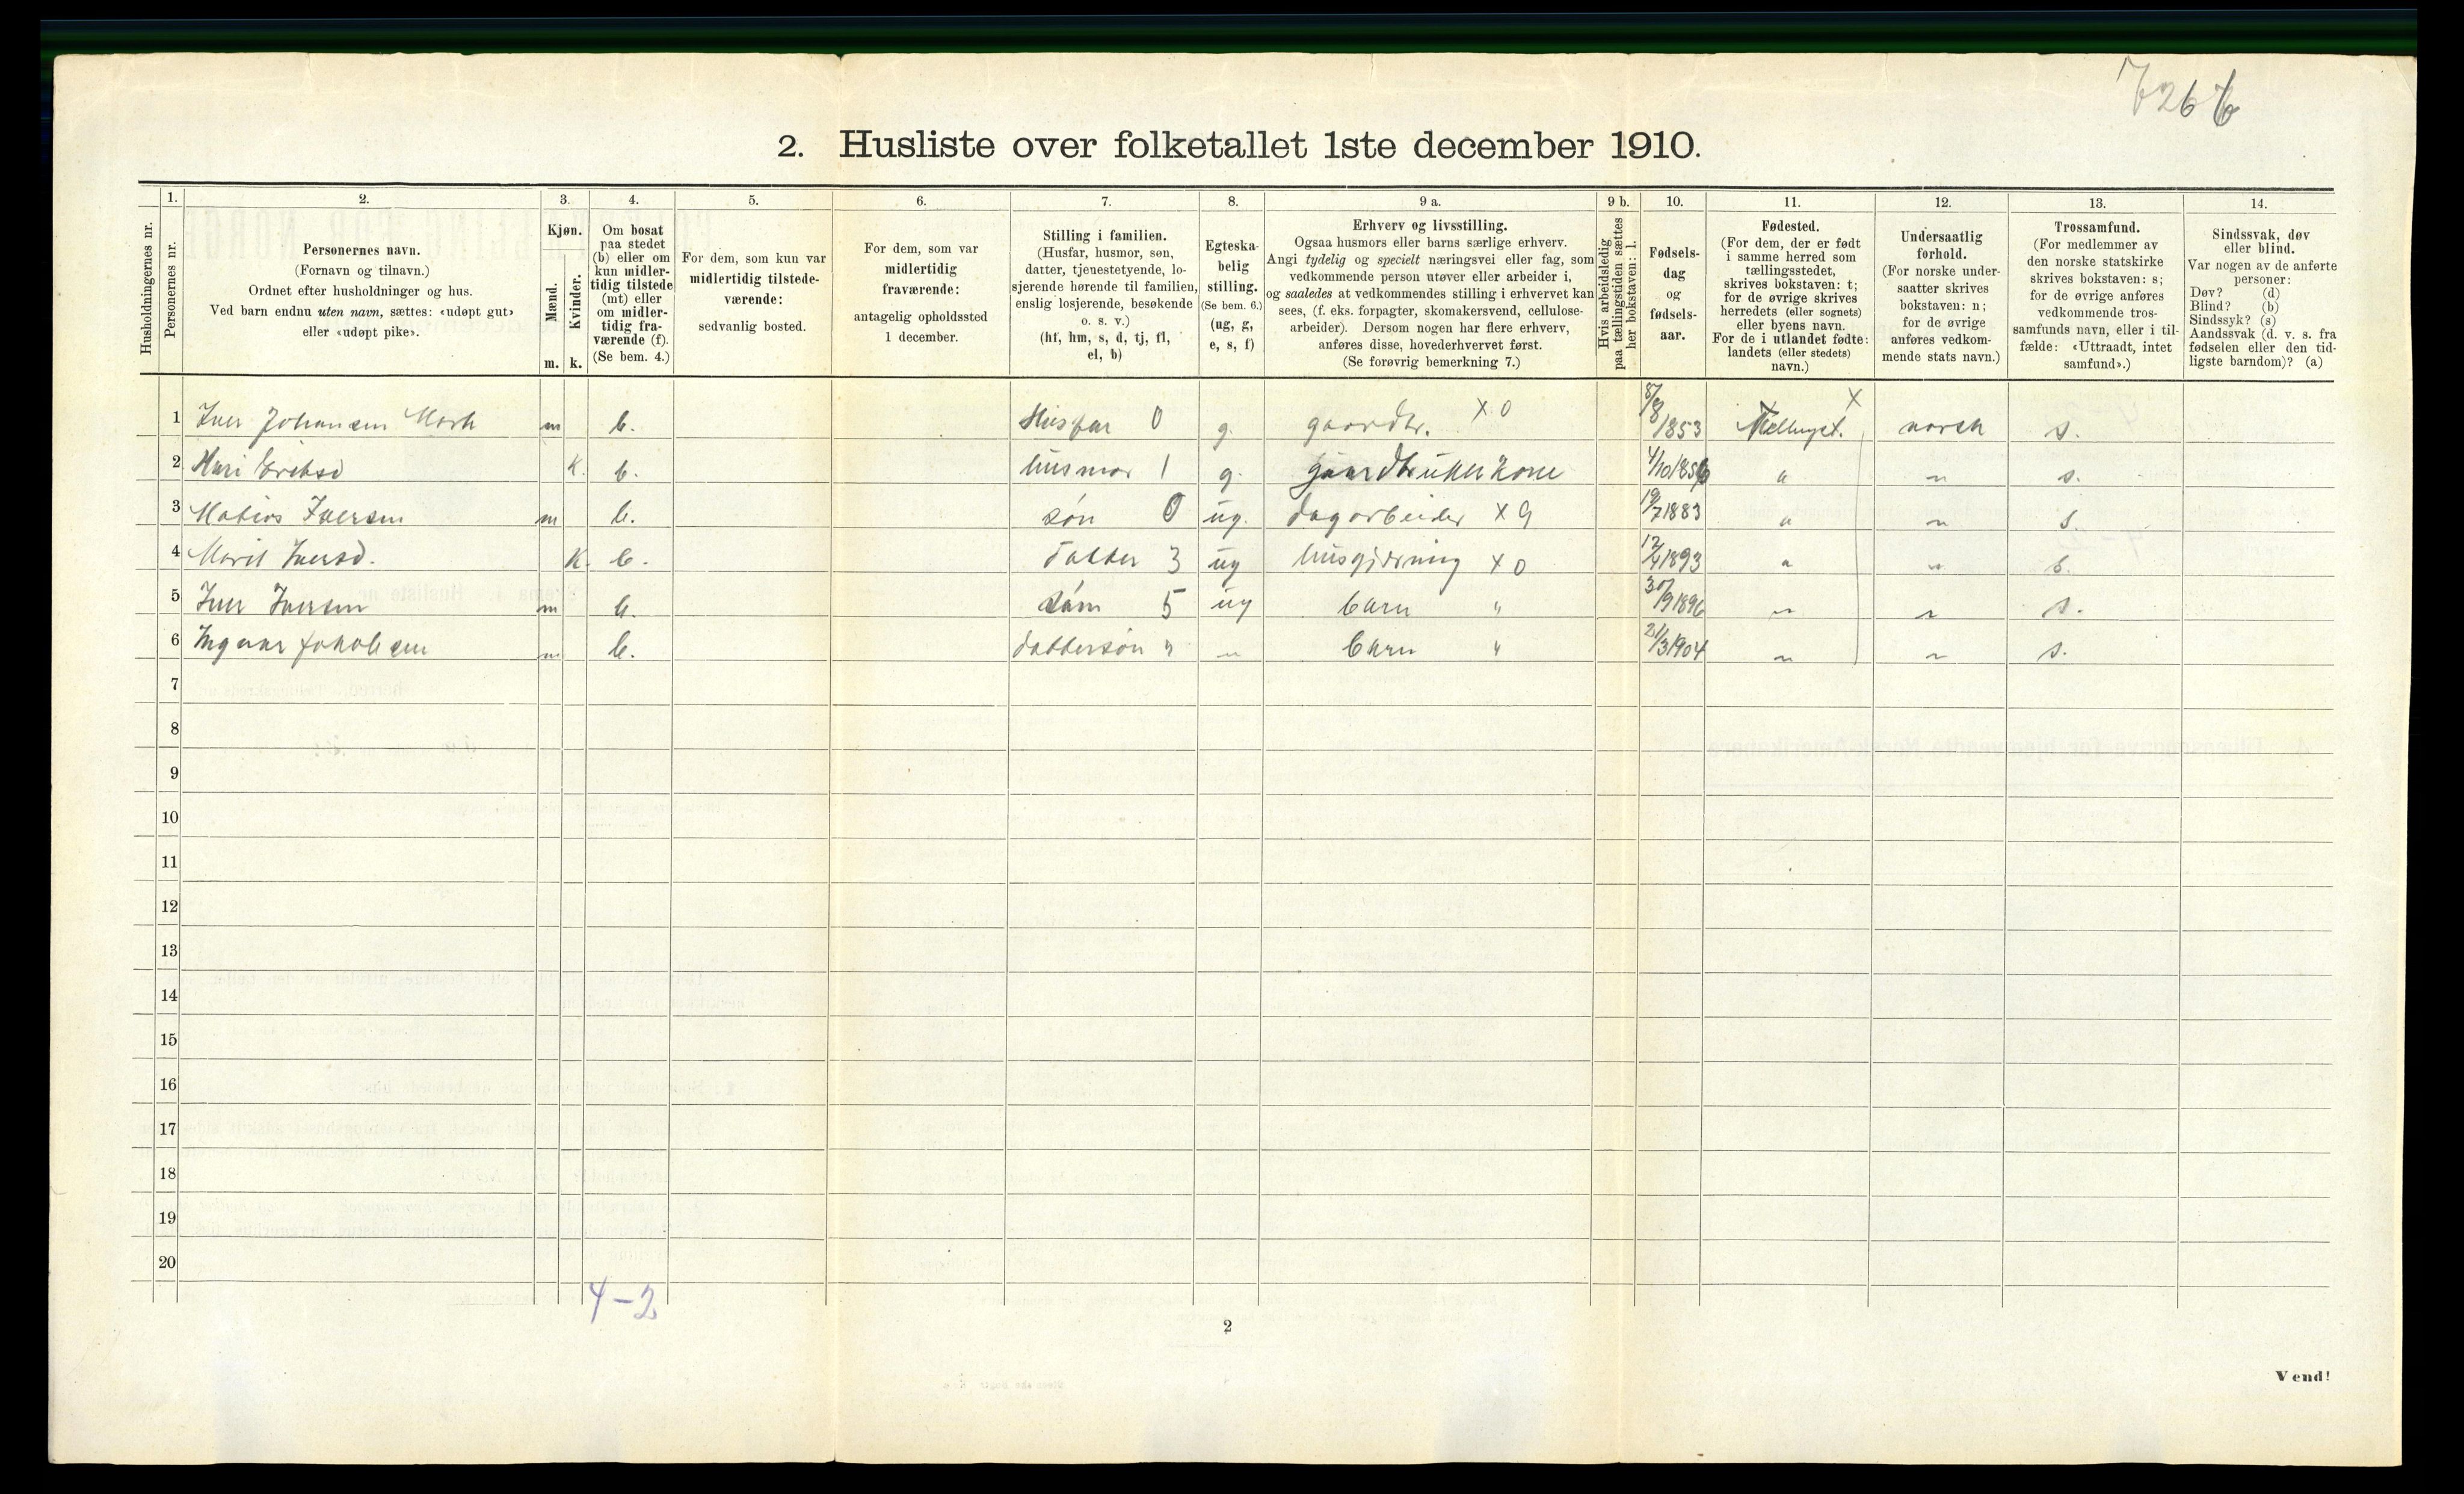 7266
2. Husliste over folketallet 1ste december 1910.
Husholdningernes nr.
1.
Personernes nr.
2.
Personernes navn.
(Fornavn og tilnavn.)
Ordnet efter husholdninger og hus.
Ved barn endnu uten navn, sættes: «udøpt gut»
eller «udøpt pike».
3.
Kjøn.
Mænd.
Kvinder.
m. k.
4.
Om bosat
paa stedet
(b) eller om
kun midler-
tidig tilstede
(mt) eller
om midler-
tidig fra-
værende (f).
(Se bem. 4.)
5.
For dem, som kun var
midlertidig tilstede-
værende:
sedvanlig bosted.
6.
For dem, som var
midlertidig
fraværende:
antagelig opholdssted
1 december.
7.
Stilling i familien.
(Husfar, husmor, søn,
datter, tjenestetyende, lo-
sjerende hørende til familien,
enslig losjerende, besøkende
o. s. v.)
(hf, hm, s, d, tj, fl,
el, b)
8.
Egteska-
belig
stilling.
(Se bem. 6.)
(ug, g,
e, s, f)
9 a.
Erhverv og livsstilling.
Ogsaa husmors eller barns særlige erhverv.
Angi tydelig og specielt næringsvei eller fag, som
vedkommende person utøver eller arbeider i,
og saaledes at vedkommendes stilling i erhvervet kan
sees, (f. eks. forpagter, skomakersvend, cellulose-
arbeider). Dersom nogen har flere erhverv,
anføres disse, hovederhvervet først.
(Se forøvrig bemerkning 7.)
9 b.
Hvis arbeidsledig
paa tællingstiden sættes
her bokstaven: l.
10.
Fødsels-
dag
og
fødsels-
aar.
11.
Fødested.
(For dem, der er født
i samme herred som
tællingsstedet,
skrives bokstaven: t;
for de øvrige skrives
herredets (eller sognets)
eller byens navn.
For de i utlandet fødte:
landets (eller stedets)
navn.)
12.
Undersaatlig
forhold.
(For norske under-
saatter skrives
bokstaven: n;
for de øvrige
anføres vedkom-
mende stats navn.)
13.
Trossamfund.
(For medlemmer av
den norske statskirke
skrives bokstaven: s;
for de øvrige anføres
vedkommende tros-
samfunds navn, eller i til-
fælde: «Uttraadt, intet
samfund».)
14.
Sindssvak, døv
eller blind.
Var nogen av de anførte
personer:
Døv? (d)
Blind? (b)
Sindssyk? (s)
Aandssvak (d. v. s. fra
fødselen eller den tid-
ligste barndom)? (a)
1 Iver Johansen m b. Husfar 0 g. gaardbr. X 0 8/8 1853 X norsk s.
2 Mari Eriksd K. b. husmor 1 g. gaardbruker kone 4/10 1856 " " s.
3 Matias Iversen m b. søn 0 ug. dagarbeider X 9 19/7 1883 " " s.
4 Marit Iversd. K. b. datter 3 ug husgjerning X 0 12/4 1893 " " s.
5 Iver Iversen m b. søn 5 ug barn " 30/9 1896 " " s.
6 Ingvar Jakobsen m b. dattersøn " " barn " 21/3 1904 " " s.
7
8
9
10
11
12
13
14
15
16
17
18
19
20
4-2
2
Vend!